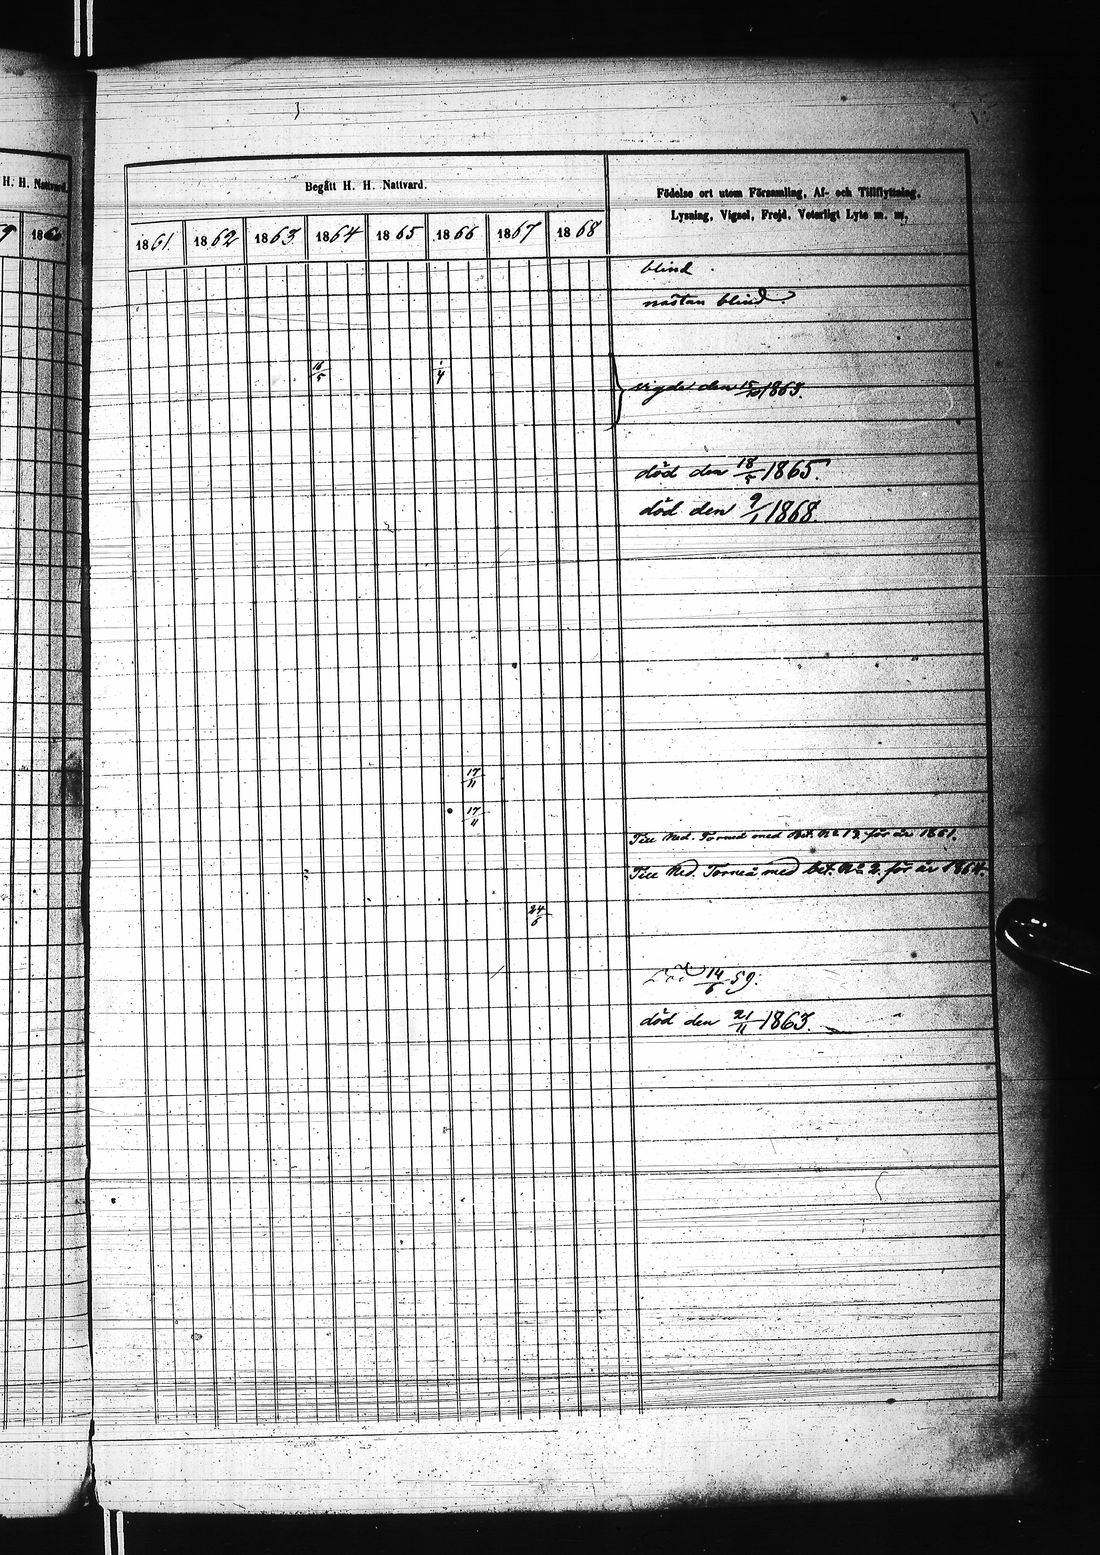 H. H. Nattvard.
Begått H. H. Nattvard.
Födelse ort utom Församling, Af- och Tillflyttning,
Lysning, Vigsel, Frejd, Veterligt Lyte m. m.
9 1860 1861 1862 1863 1864 1865 1866 1867 1868
blind
nästan blind.
16/5 1/4
vigde den 15/10 1863.
död den 18/5 1865.
död den 9/1 1868.
17/11
17/11
Till Ned. Torneå med Bet. No 19 för år 1861.
Till Ned. Torneå med bet. No 2. för år 1864.
24/6
Död 14/6 59.
död den 21/11 1863.